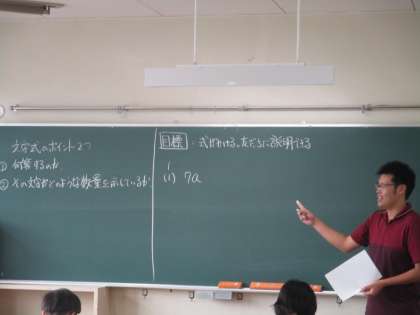 文字式のポイント2つ
① 何算するのか
② その文字がどのような数量を示しているか
目標 ・式がかける。友だちに説明できる
1
(1) 7a